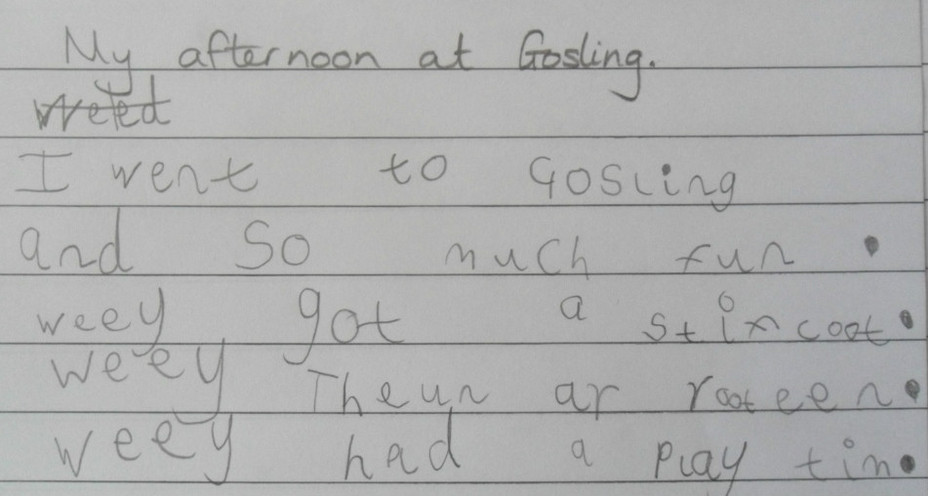 My afternoon at Gosling.
Weted
I went to Gosling
and So much fun.
weey got a stincoot.
weey Theun ar rooteen.
weey had a play tim.